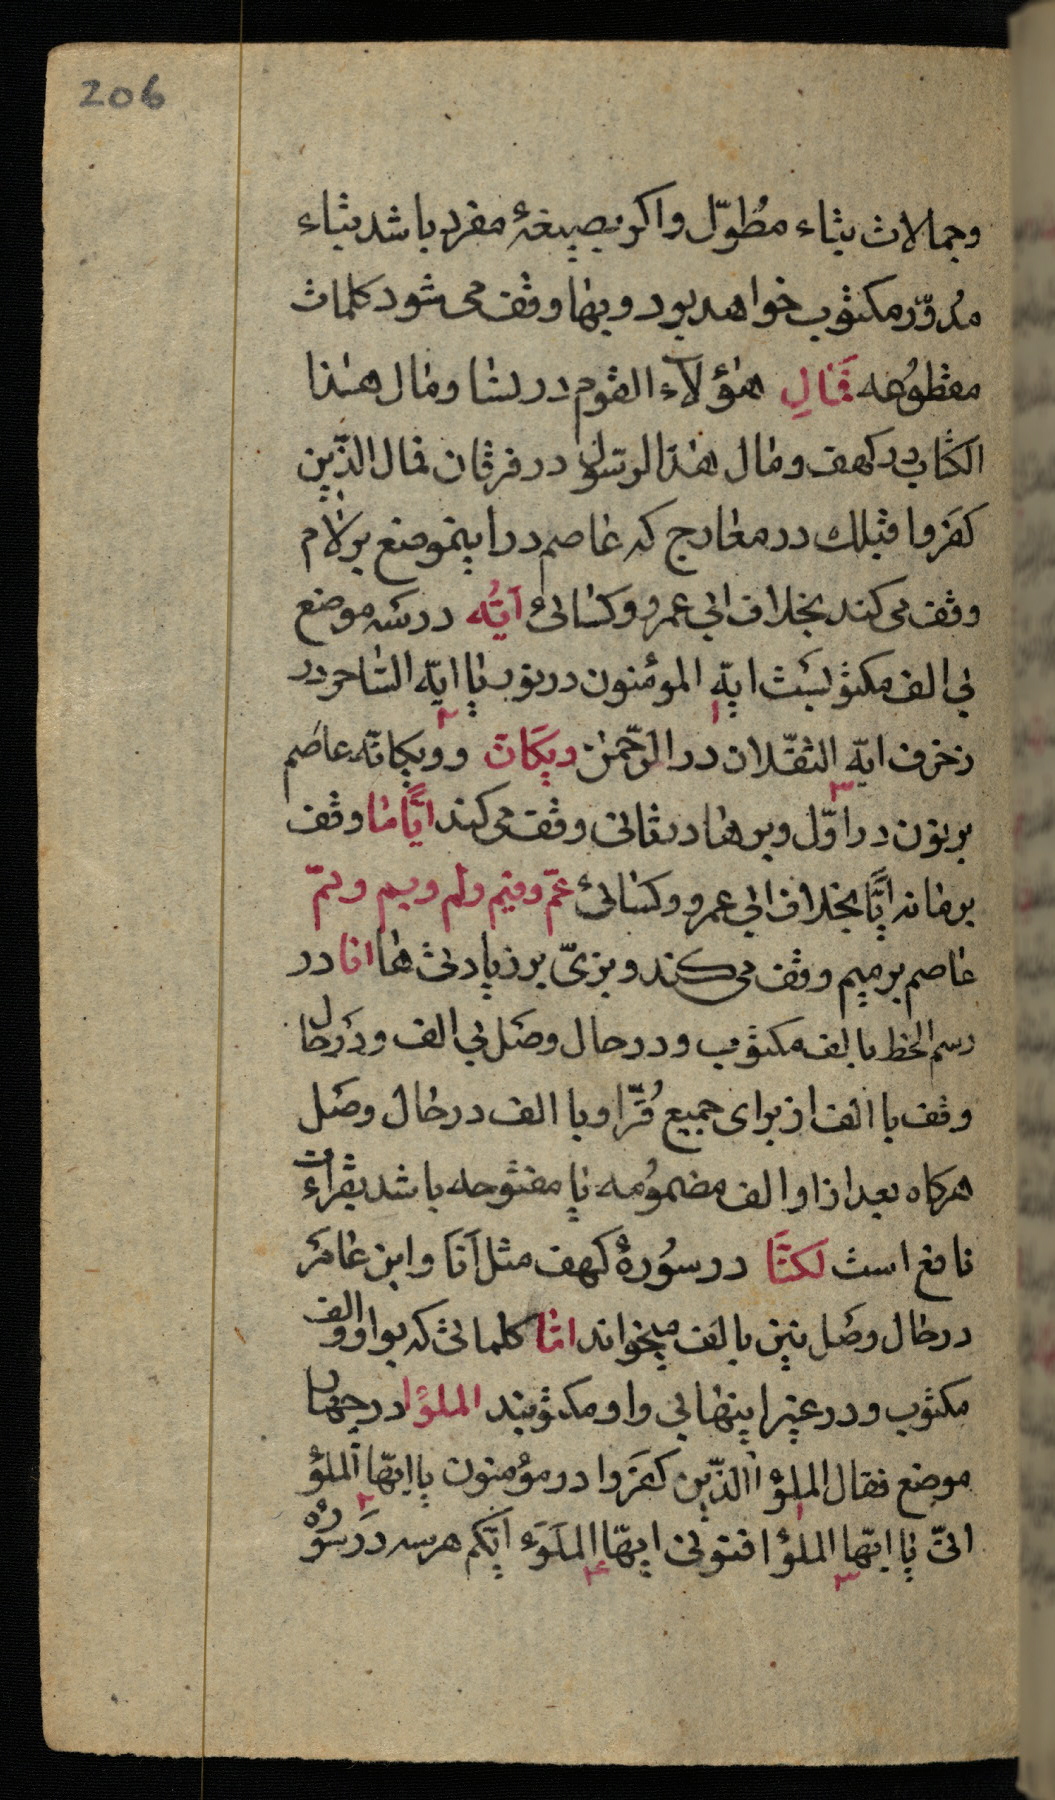 206
وجمالات بتاء مطوّل واکر بصیغهٔ مفرد باشد بتاء
مدوّر مکتوب خواهد بود و بها وقف می شود کلمات
مقطوعه فَمَالِ هؤلاء القوم در نسا ومال هذا
الکتاب در کهف ومال هذا الرسول در فرقان فمال الذین
کفروا قبلک در معارج که عاصم در اینموضع بر لام
وقف می کند بخلاف ابی عمرو وکسائی اَیُّه در سه موضع
بی الف مکتوبست ایّه المؤمنون در نور یا ایّه الساحر در
زخرف ایّه الثقلان در الرّحمن ویکَانّ وویکانّه عاصم
بر نون در اوّل وبر ها در ثانی وقف می کند ایًّامّا وقف
بر ما نه ایًّا بخلاف ابی عمرو وکسائی عمّ وفیم ولم وبم وممّ
عاصم بر میم وقف می کند وبزیّ بر زیادتی ها انا در
رسم الخط بالف مکتوب ودر حال وصل بی الف ودر حال
وقف با الف از برای جمیع قُرّا وبا الف در حال وصل
هرکاه بعد از او الف مضمومه یا مفتوحه باشد بقرائت
نافع است لکنَّا در سورهٔ کهف مثل اَنَا وابن عامر
در حال وصل نیز بالف میخواند امّا کلماتی که بواو والف
مکتوب ودر غیر اینها بی واو مکتوبند الملؤا در چهار
موضع فقال الملؤا الذین کفروا در مؤمنون یا ایّها الملؤ
انّی یا ایّها الملؤا افتونی ایّها الملؤء ایّکم هر سه در سورهٔ